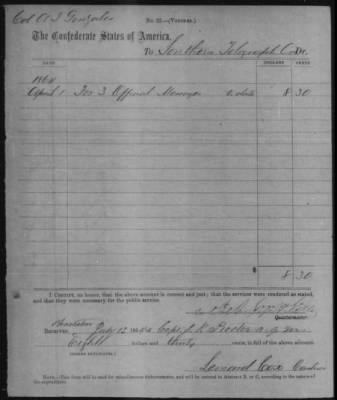 Col A J Gonzales
No. 22.—(Voucher.)
The Confederate States of America,
To Southern Telegraph Co Dr.
DATE
DOLLARS CENTS
1864
April 1 For 3 Official Messages to date 8 30
8 30
I CERTIFY, on honor, that the above account is correct and just; that the services were rendered as stated,
and that they were necessary for the public service.
Quartermaster.
Charleston
RECEIVED July 12 1864 Capt
Eight dollars and thirty cents, in full of the above account.
(SIGNED DUPLICATES.)
Cox Cashier
NOTE.—This form will be used for miscellaneous disbursements, and will be entered in Abstract B. or C, according to the nature of
the expenditure.